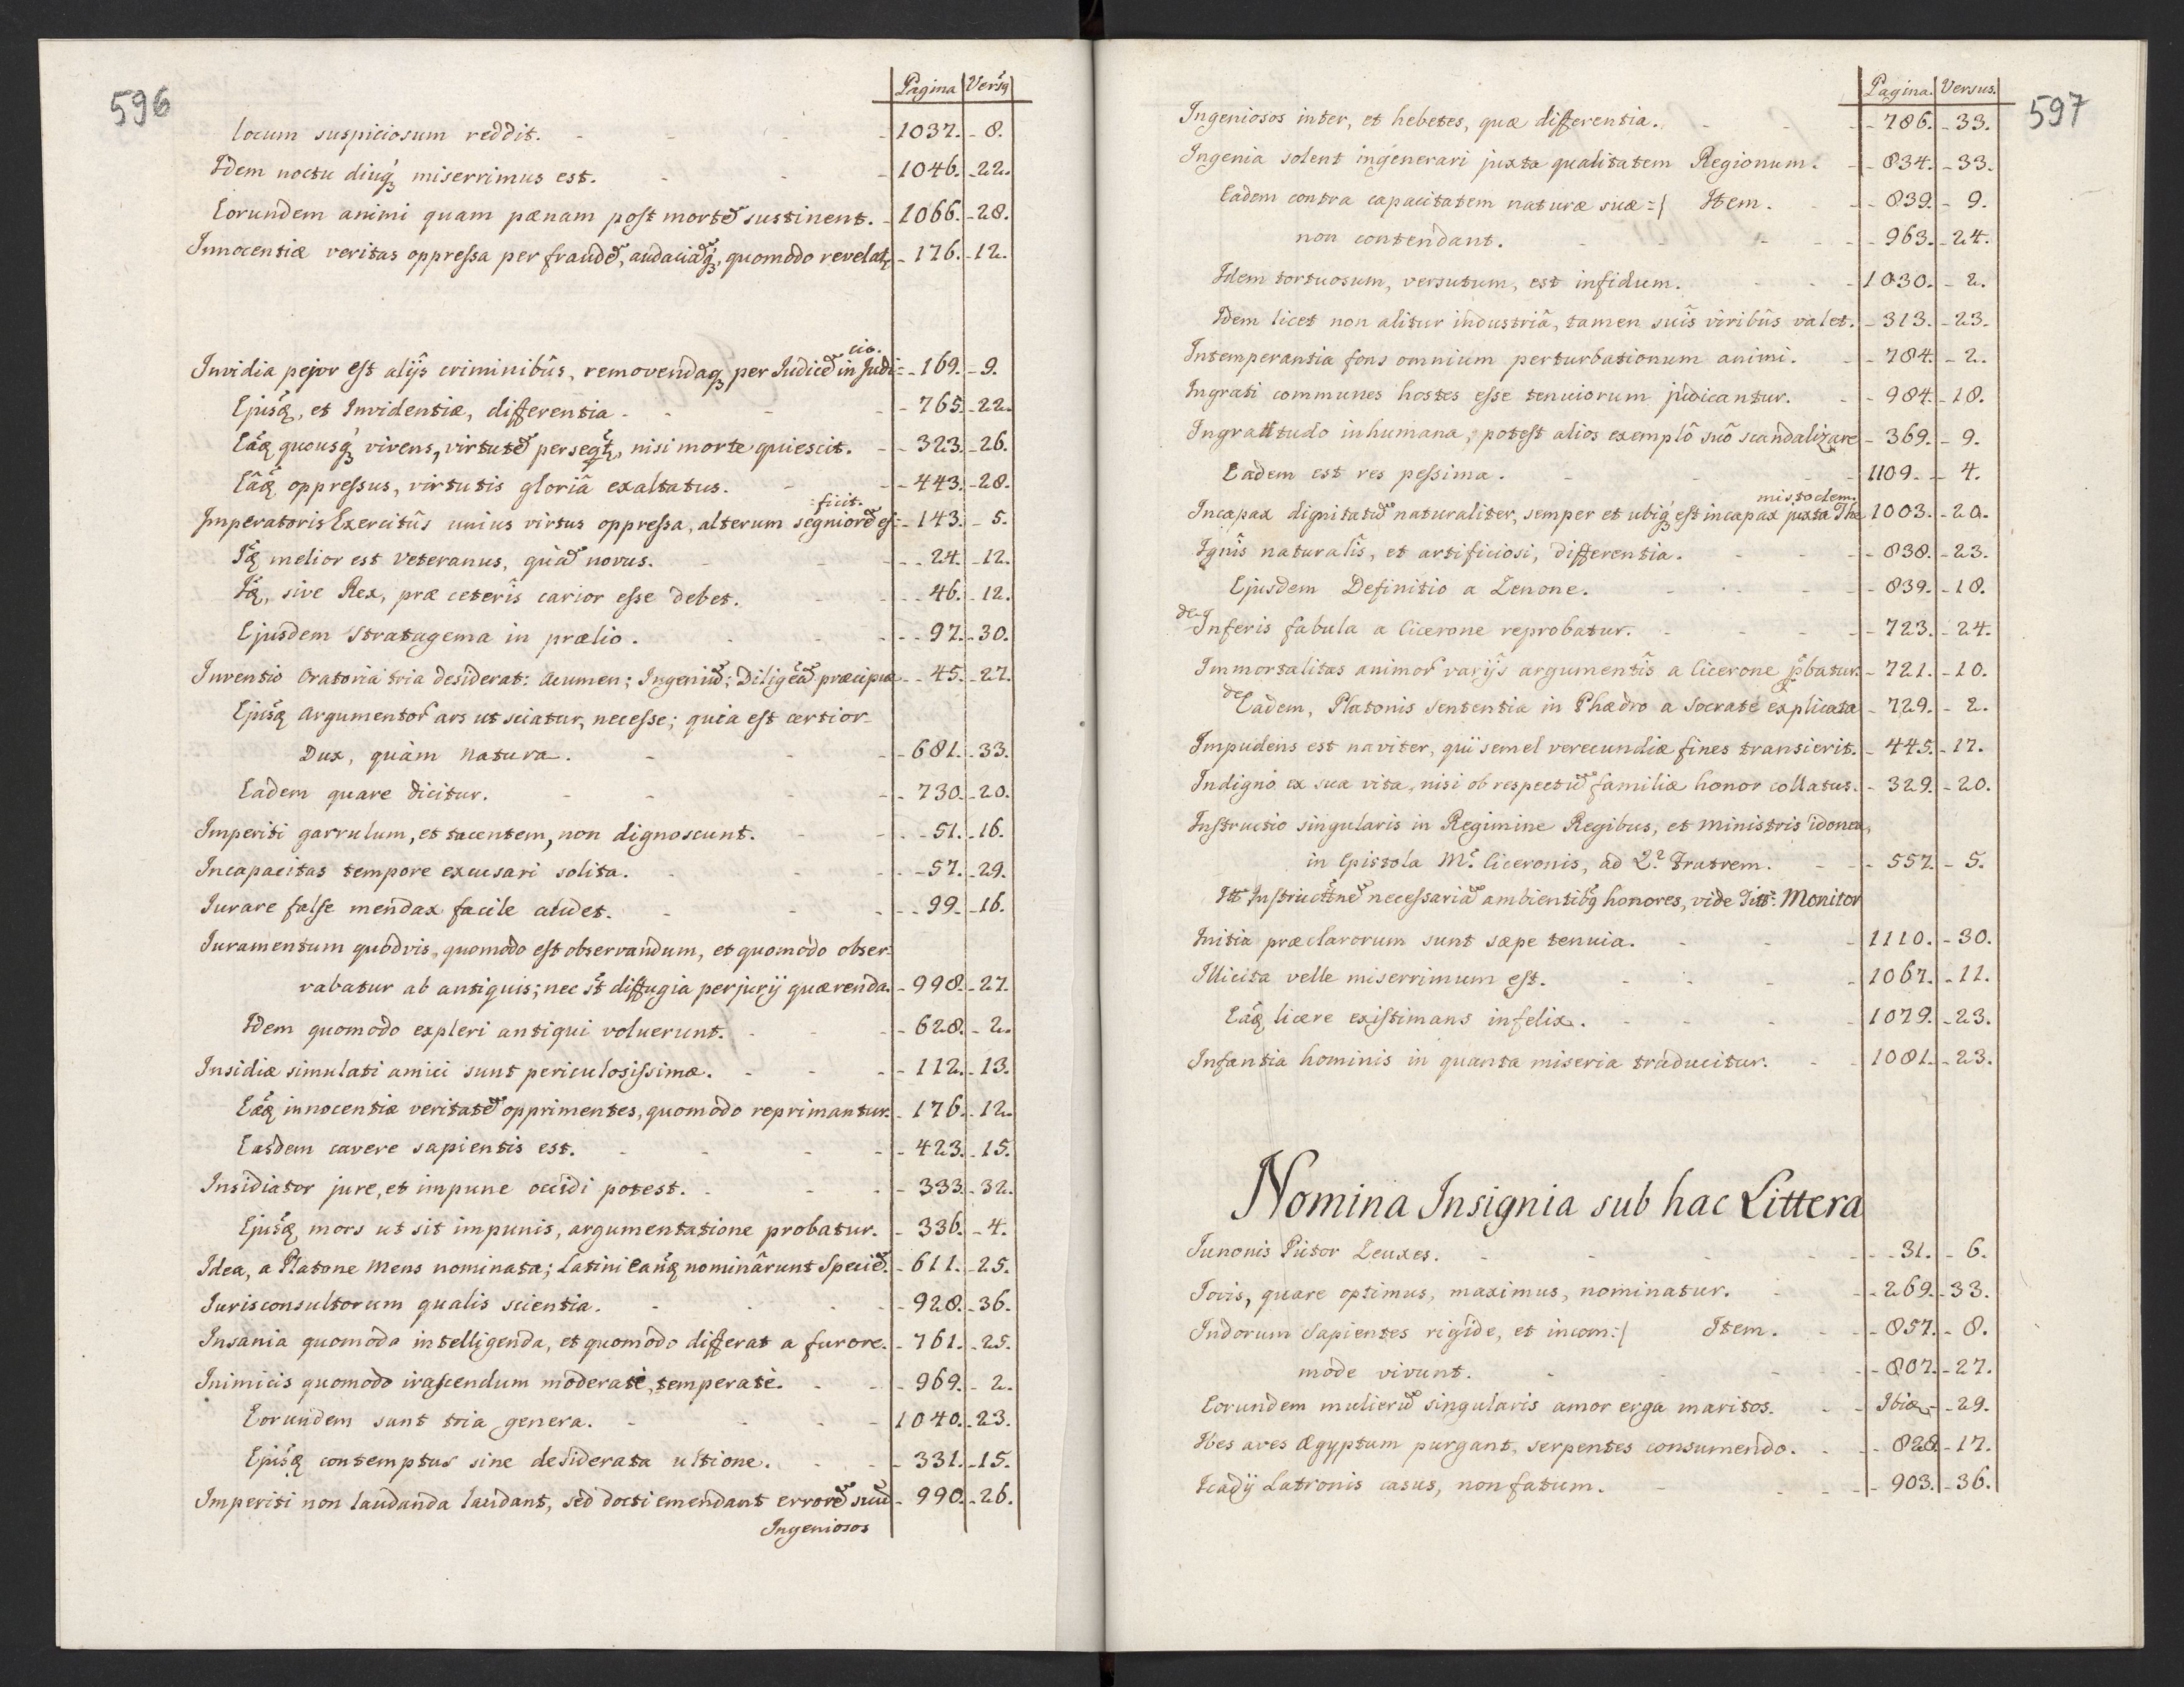 596
Pagina Versꝰ
locum suspiciosum reddit. - 1037. - 8.
Idem noctu diuq́ꝫ miserrimus est. - 1046. - 22.
Eorundem animi quam pænam post mortē sustinent. - 1066. - 28.
Innocentiæ veritas oppressa per fraudē, audaciāq́ꝫ, quomodo revelatꝫ - 176. - 12.
cio.
Invidia pejor est alijs criminibûs, removendaqꝫ per Iudicē in Judi= - 169. - 9.
Ejusꝗ, et Invidentiæ, differentia - 765. - 22.
Eâꝗ quousq́ꝫ vivens, virtutē perseqt̃, nisi morte quiescit. - 323. - 26.
Eâꝗ oppressus, virtutis gloriâ exaltatus. - 443. - 28.
=ficit.
Imperatoris Exercitûs unius virtus oppressa, alterum segniorē ef= - 143. - 5.
Iꝗ melior est Veteranus, quàm novus. - 24. - 12.
Iꝗ, sive Rex, præ ceterîs carior esse debet. - 46. - 12.
Ejusdem Stratagema in prælio. - 97. - 30.
Inventio Oratoria tria desiderat: Acumen; Ingeniū; Diligēā præcipue - 45. - 27.
Ejusꝗ Argumentor̃ ars ut sciatur, necesse; quia est certior
Dux, quàm Natura. - 681. - 33.
Eadem quare dicitur. - 730. - 20.
Imperiti garrulum, et tacentem, non dignoscunt. - 51. - 16.
Incapacitas tempore excusari solita. - 57. - 29.
Iurare false mendax facile audet. - 99. - 16.
Iuramentum quodvis, quomodo est observandum, et quomodo obser=
vabatur ab antiquis; nec st̃ diffugia perjurij quærenda. - 998. - 27.
Idem quomodo expleri antiqui voluerunt. - 628. - 2.
Insidiæ simulati amici sunt periculosissimæ. - 112. - 13.
Eæꝗ innocentiæ veritatē opprimentes, quomodo reprimantur. - 176. - 12.
Easdem cavere sapientis est. - 423. - 15.
Insidiator jure, et impune occidi potest. - 333. - 32.
Ejusꝗ mors ut sit impunis, argumentatione probatur. - 336. - 4.
Idea, a Platone Mens nominata; Latini Eanꝗ nominârunt Speciē. - 611. - 25.
Iurisconsultorum qualis scientia. - 928. - 36.
Insania quomodo intelligenda, et quomodo differat a furore. - 761. - 25.
Inimicis quomodo irascendum moderatè, temperatè. - 969. - 2.
Eorundem sunt tria genera. - 1040. - 23.
Ejusꝗ contemptus sine desiderata ultione. - 331. - 15.
Imperiti non laudanda laudant, sed docti emendant errorē suū - 990. - 26.
Ingeniosos
597
Pagina. Versus.
Ingeniosos inter, et hebetes, quæ differentia. - 786. - 33.
Ingenia solent ingenerari juxta qualitatem Regionum. - 834. - 33.
Eadem contra capacitatem naturæ suæ={ Item. - 839. - 9.
non contendant. - 963. - 24.
Idem tortuosum, versutum, est infidum. - 1030. - 2.
Idem licet non alitur industriâ, tamen suîs viribûs valet. - 313. - 23.
Intemperantia fons omnium perturbationum animi. - 784. - 2.
Ingrati communes hostes esse tenuiorum judicantur. - 984. - 18.
Ingratitudo inhumana, potest alios exemplô suô scandalizare - 369. - 9.
Eadem est res pessima. - 1109. - 4.
mistoclem.
Incapax dignitatū naturaliter, semper et ubiq́ꝫ est incapax juxta The - 1003. - 20.
Ignis naturalis, et artificiosi, differentia. - 838. - 23.
Ejusdem Definitio a Zenone. - 839. - 18.
de Inferis fabula a Cicerone reprobatur. - 723. - 24.
Immortalitas animor̃ varijs argumentîs a Cicerone pbatur. - 721. - 10.
de Eadem, Platonis sententia in Phædro a Socrate explicata - 729. - 2.
Impudens est naviter, qui semel verecundiæ fines transierit. - 445. - 17.
Indigno ex sua vita, nisi ob respectū familiæ honor collatus. - 329. - 20.
Instructio singularis in Regimine Regibus, et Ministris idonea,
in Epistola M: Ciceronis, ad Q: Fratrem. - 557. - 5.
Itē Instructnē necessariā ambientibꝰ honores, vide Titt: Monitor
Initia præclarorum sunt sæpe tenuia. - 1110. - 30.
Illicita velle miserrimum est. - 1067. - 11.
Eaꝗ licere existimans infelix. - 1079. - 23.
Infantia hominis in quanta miseria traducitur. - 1081. - 23.
Nomina Insignia sub hac Littera
Iunonis Pictor Zeuxes. - 31. - 6.
Iovis, quare optimus, maximus, nominatur. - 269. - 33.
Indorum Sapientes rigide, et incom={ Item. - 857. - 8.
mode vivunt. - 807. - 27.
Eorundem mulierū singularis amor erga maritos. - Ibid - 29.
Ibes aves Ægyptum purgant, serpentes consumendo. - 828. - 17.
Icadij Latronis casus, non fatum. - 903. - 36.